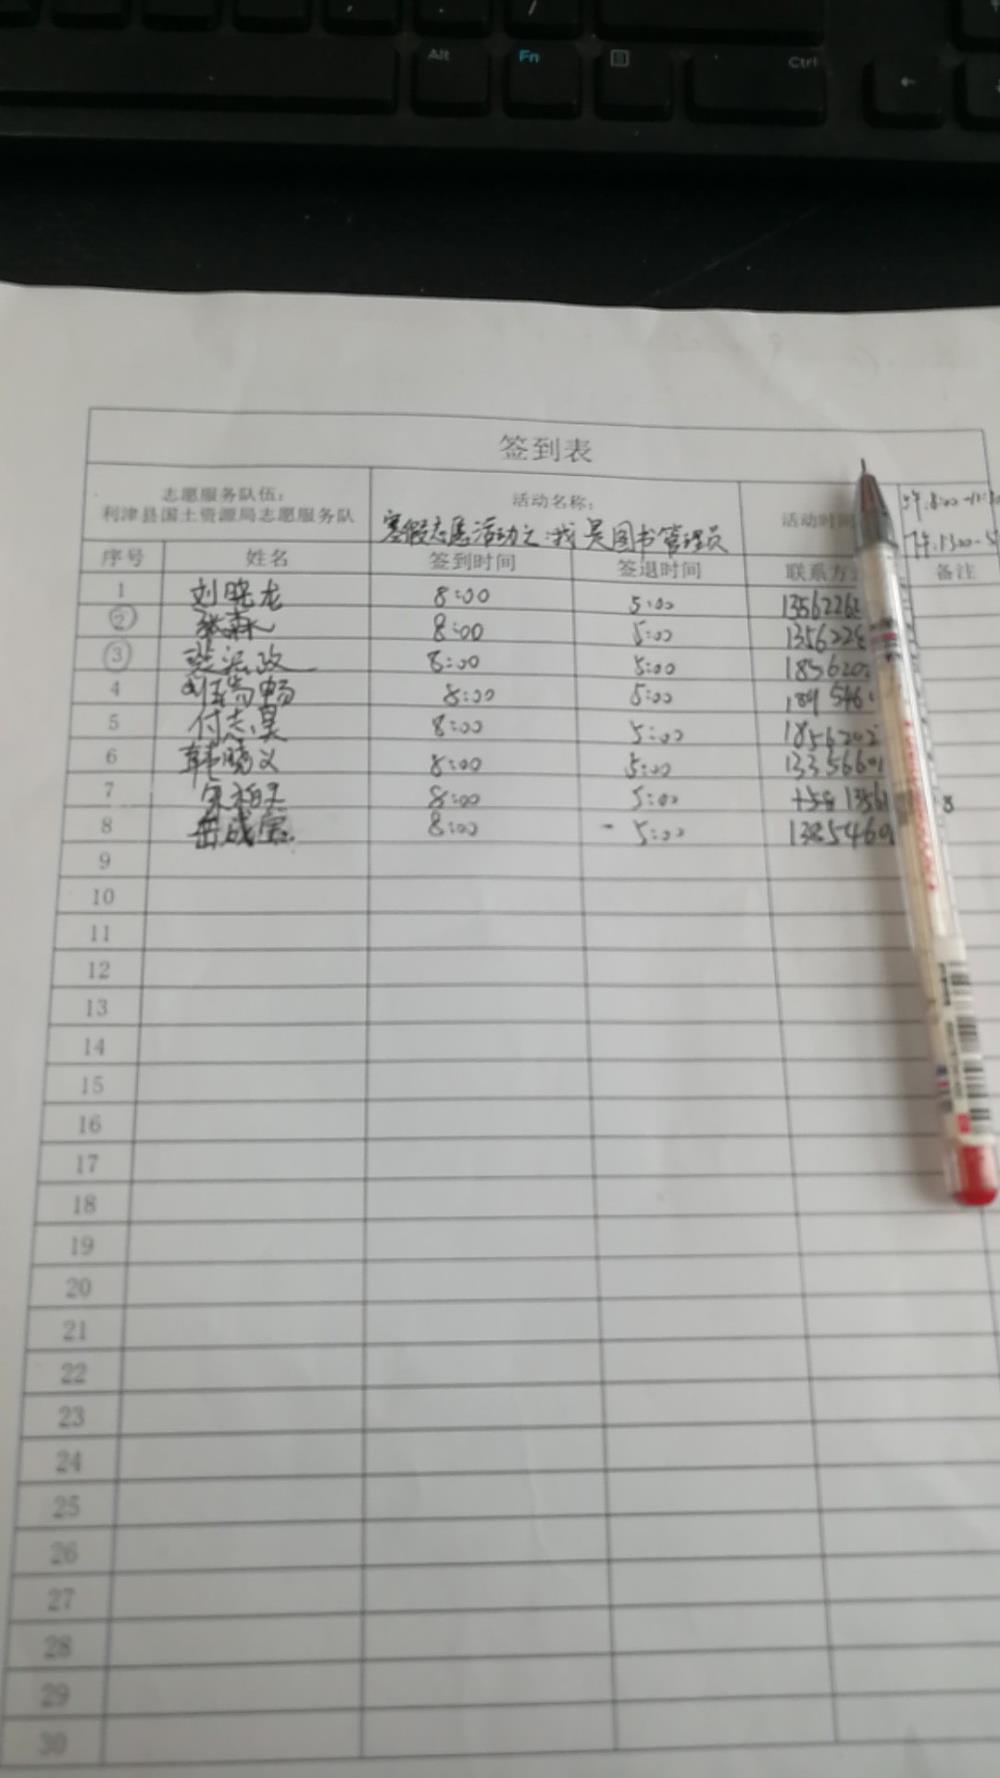 Alt Fn Ctrl
签到表
志愿服务队伍：
利津县国土资源局志愿服务队
活动名称：
寒假志愿活动之:我是图书管理员
活动时间
序号 姓名 签到时间 签退时间 联系方 备注
1 刘晓龙 8:00 5:00 1356226
2 张森 8:00 5:00 1356228
3 8:00 5:00 185620
4 8:00 5:00 189 546
5 付志昊 8:00 5:00 1856202
6 韩晓义 8:00 5:00 13356601
7 8:00 5:00 8
8 岳成 8:00 5:00
9
10
11
12
13
14
15
16
17
18
19
20
21
22
23
24
25
26
27
28
29
30